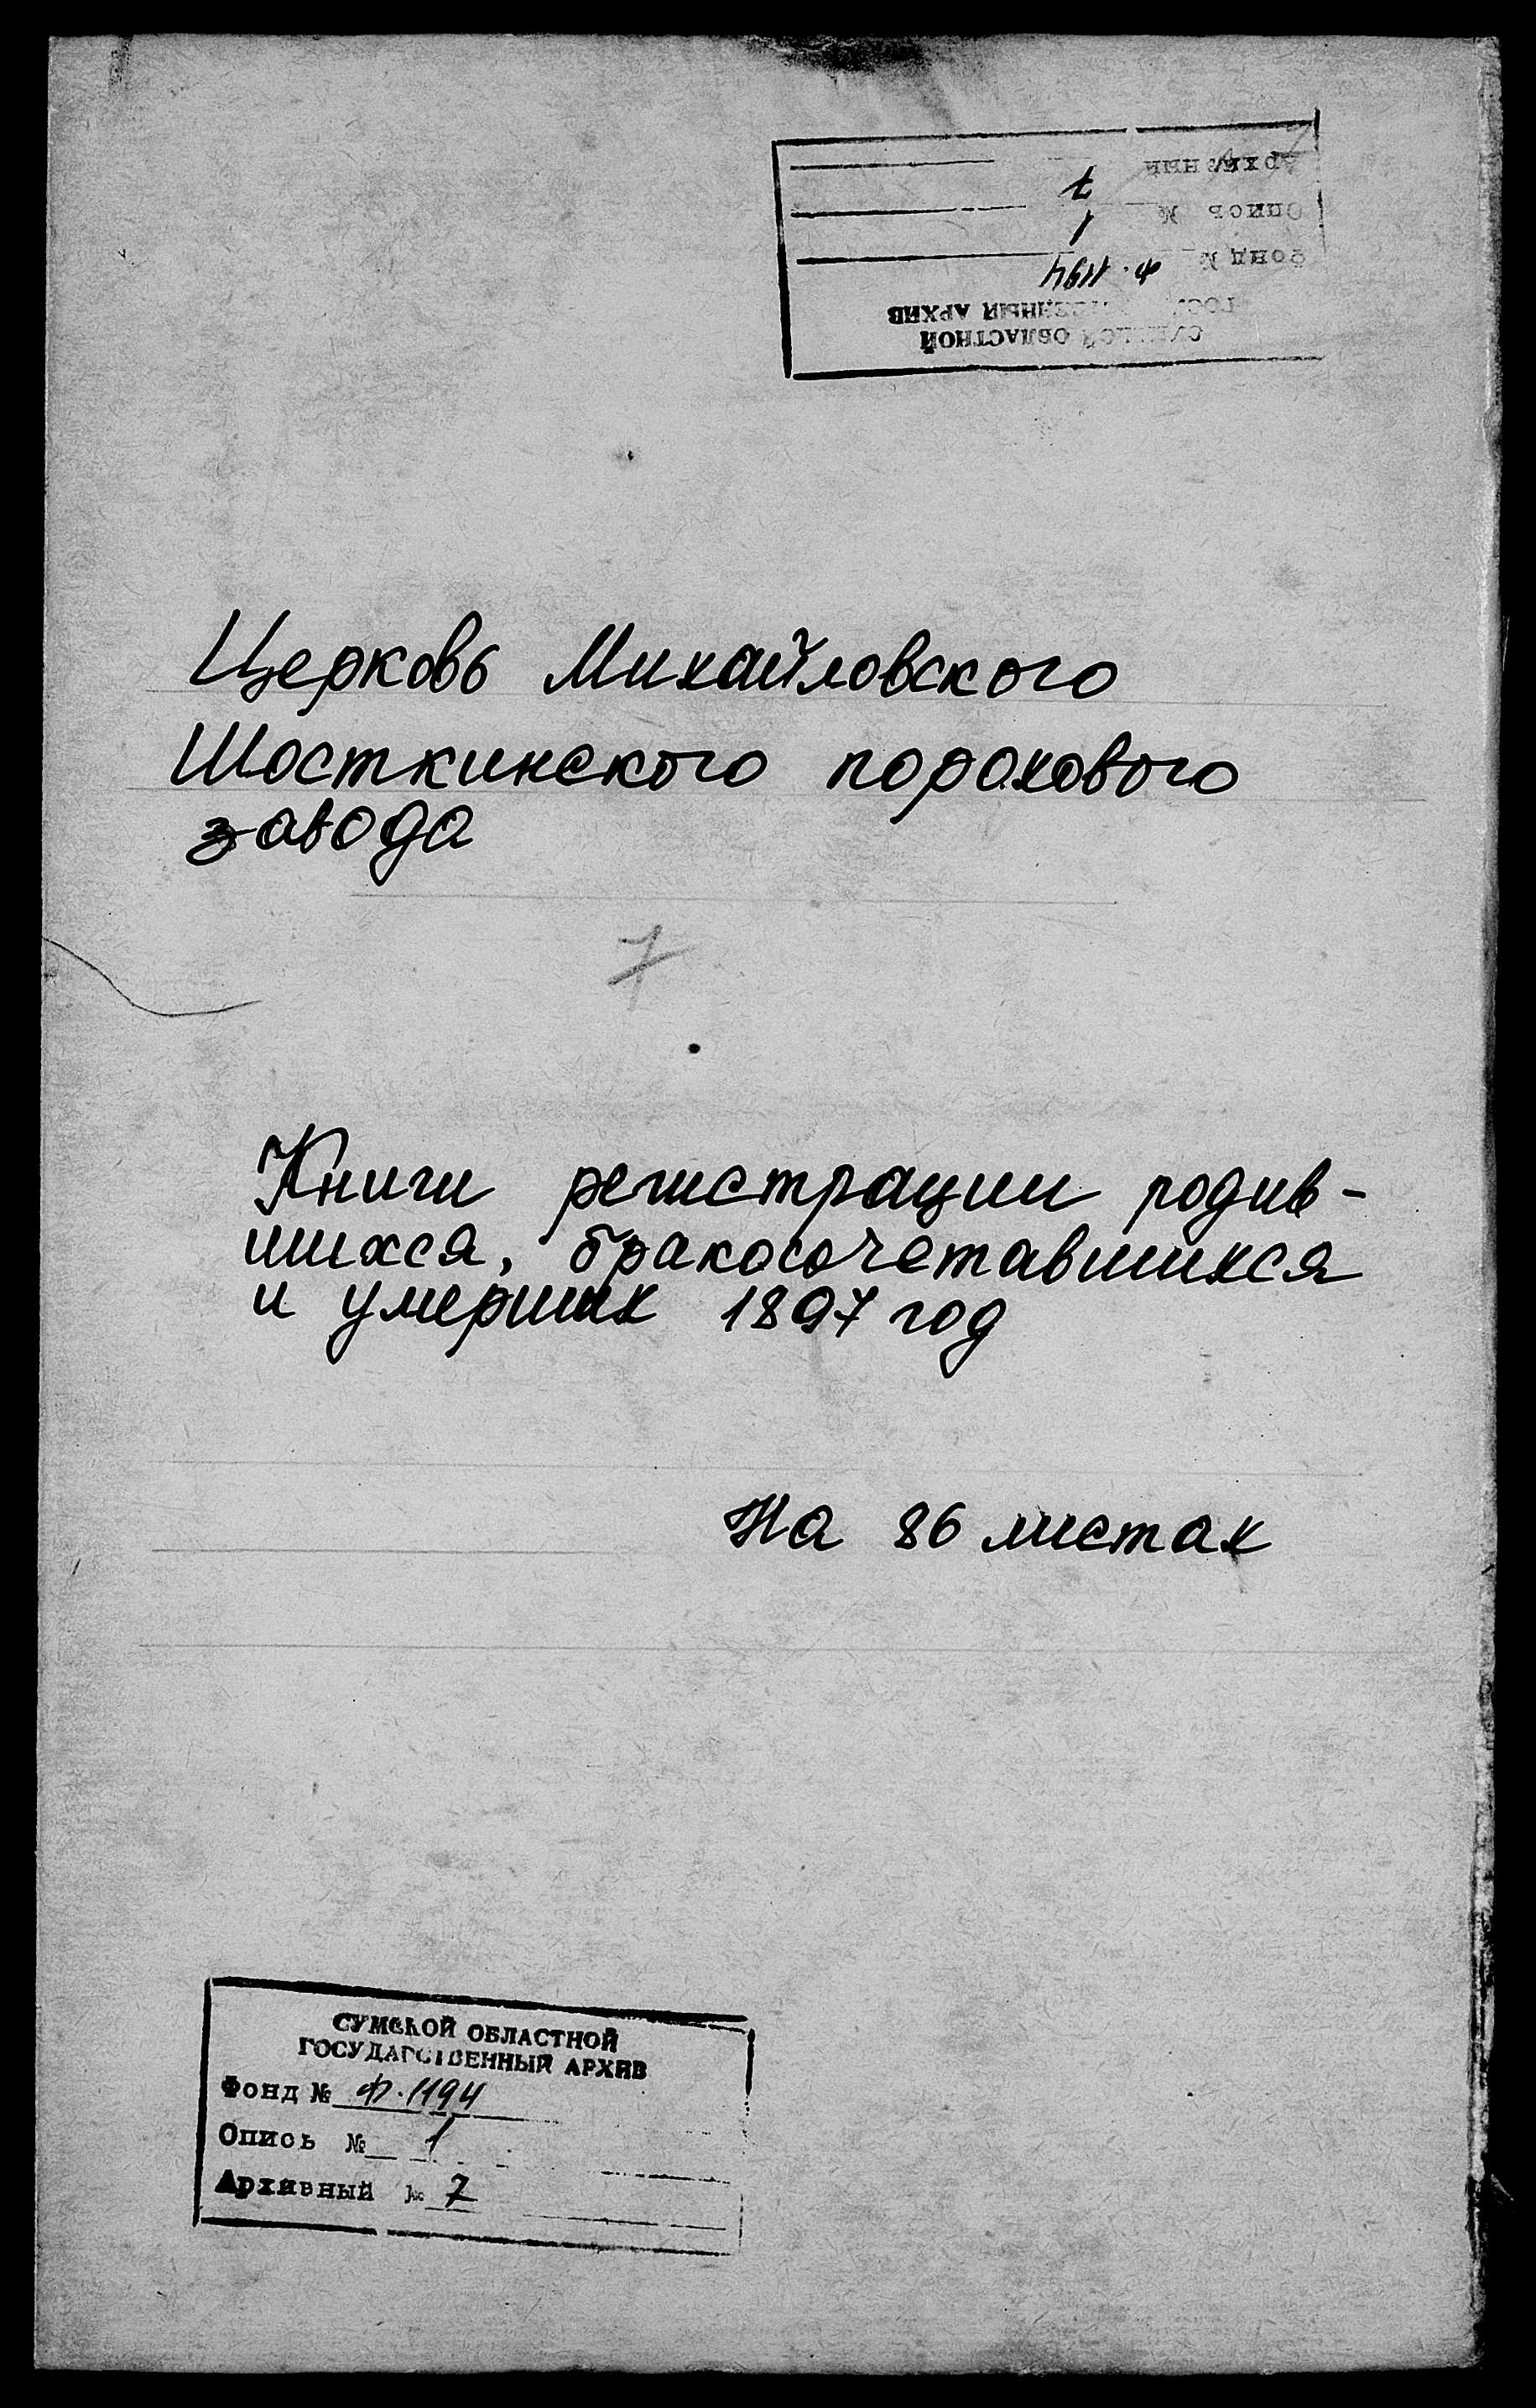 Архивный 7
Опись № 1
Фонд № Ф. 1194
АРХИВ
ОБЛАСТНОЙ
Церковь Михайловского
Шосткинского порохового
завода
7
Книги регистрации родив-
шихся, бракосочетавшихся
и умерших 1897 год
На 86 листах
СУМСКОЙ ОБЛАСТНОЙ
ГОСУДАРСТВЕННЫЙ АРХИВ
Фонд № Ф. 1194
Опись № 1
Архивный № 7